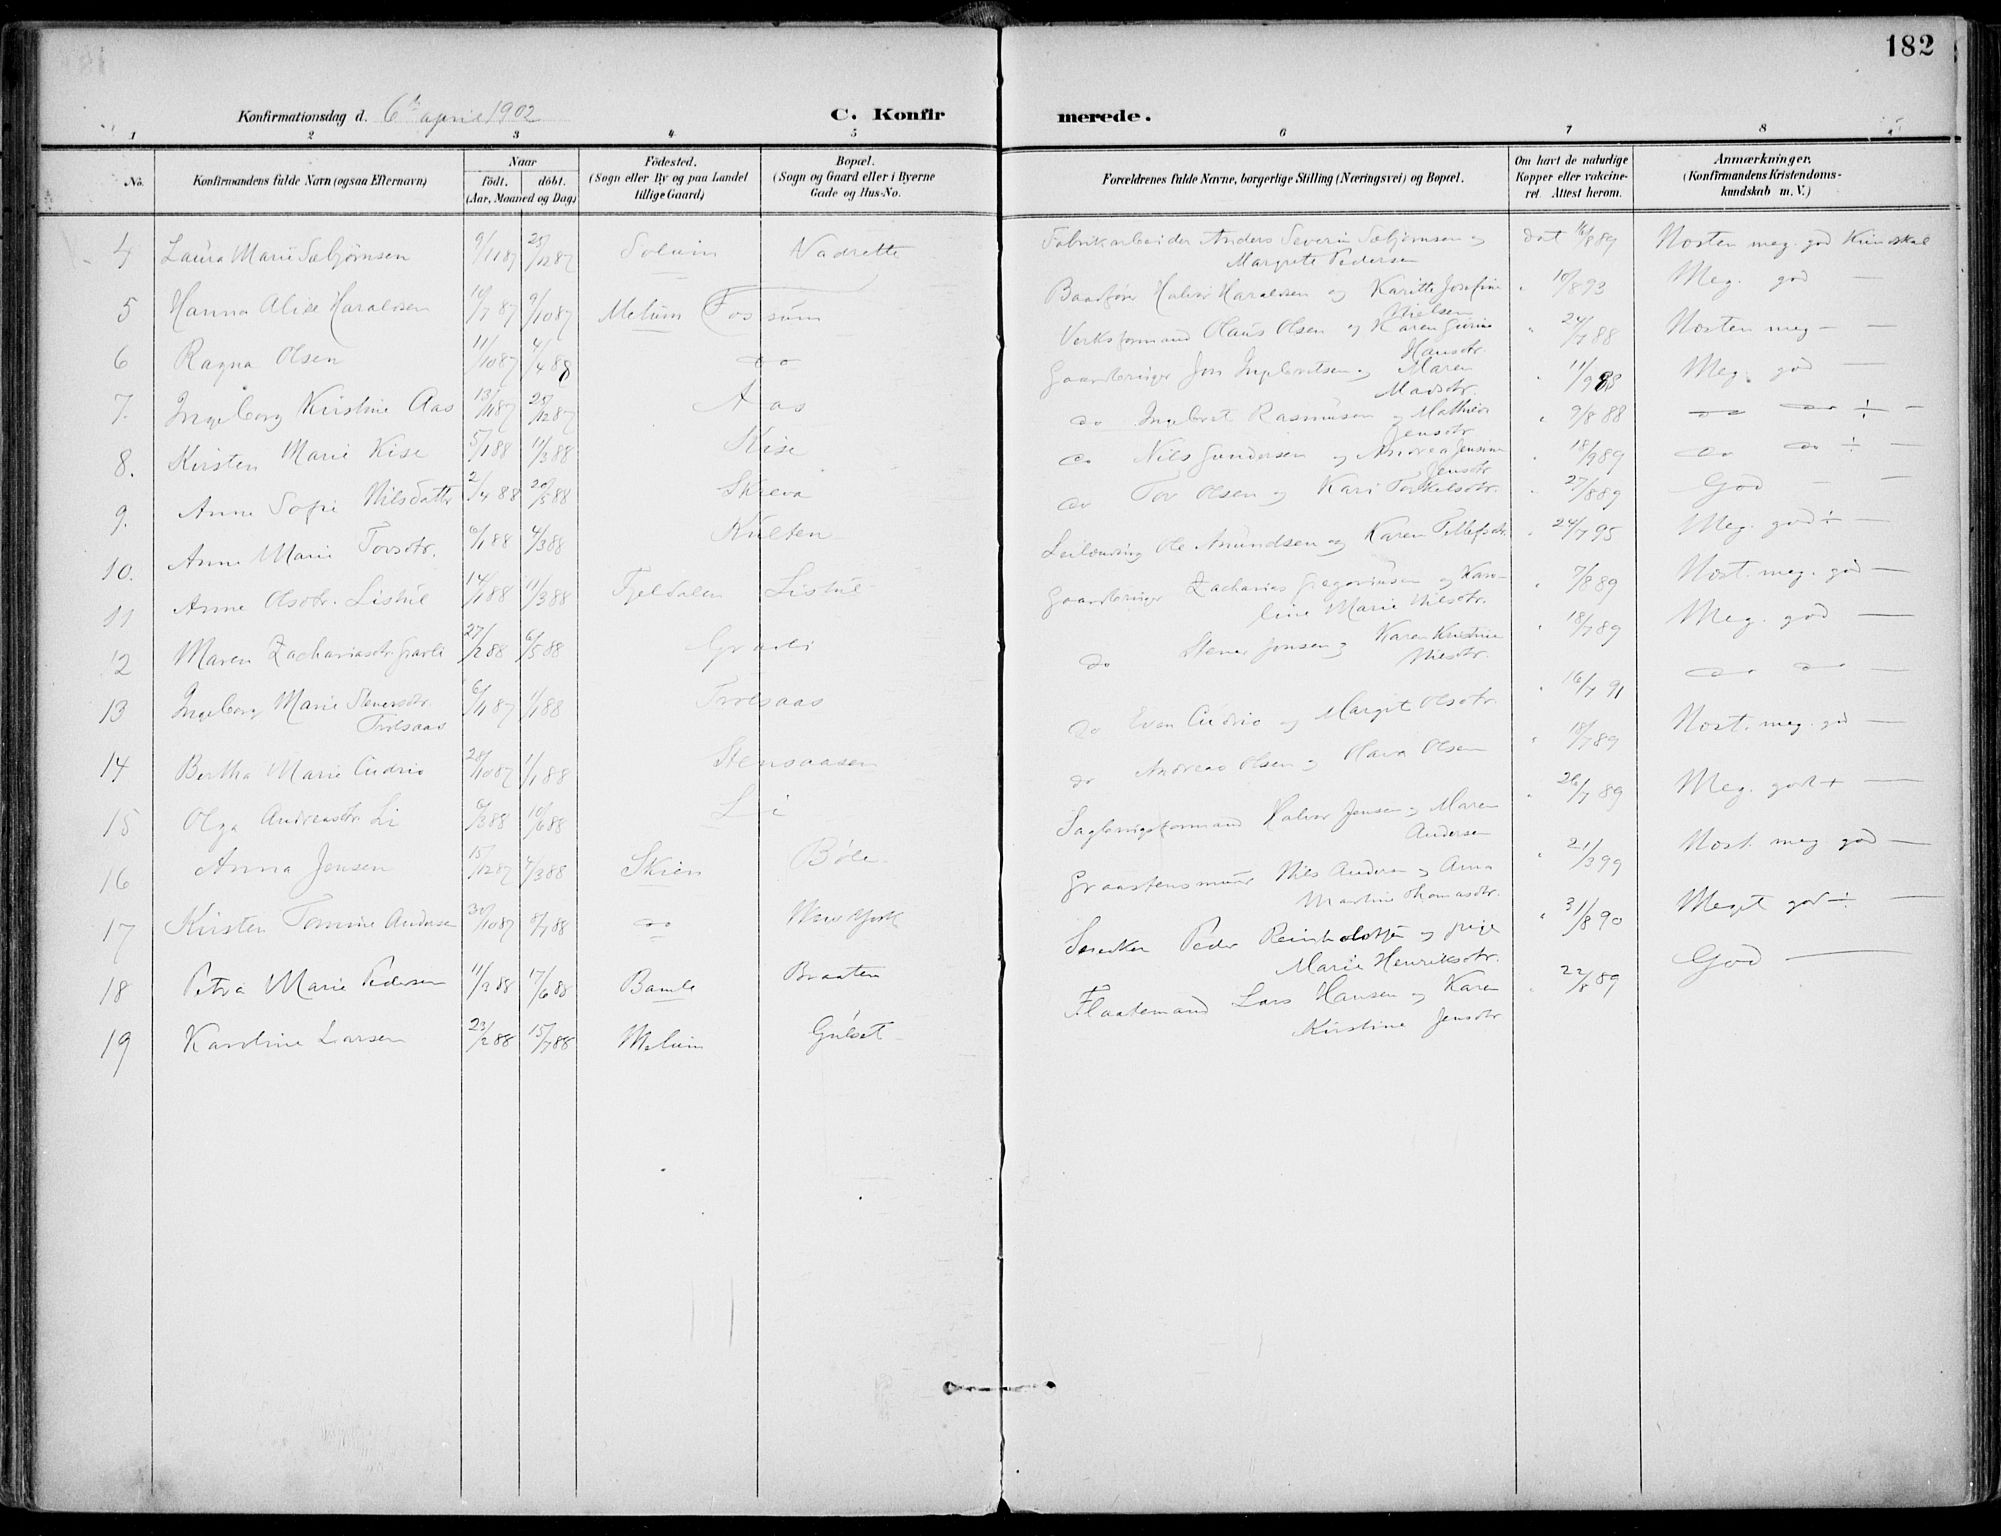 182
Konfirmationsdag d. 6te april 1902
C. Konfir merede.
1 2 3 4 5 6 7 8
No.
Konfirmandens fulde Navn (ogsaa Efternavn)
Naar
födt. döbt.
(Aar, Maaned og Dag)
Födested.
(Sogn eller By og paa Landet
tillige Gaard)
Bopæl.
(Sogn og Gaard eller i Byerne
Gade og Hus-No.
Forældrenes fulde Navne, borgerlige Stilling (Næringsvei) og Bopæl.
Om havt de naturlige
Kopper eller vakcine-
ret. Attest herom.
Anmærkninger.
(Konfirmandens Kristendoms-
kundskab m. V.)
4 Laura Marie Sæbjørnsen 9/11 87 25/12 87 Solum Nadrette Fabrikarbeider Anders Severin Sæbjørnsen og
Margrete Pedersen dat 16/8 89 Næsten meg. god Kundskab
5 Hanna Alise Haraldsen 10/7 87 9/10 87 Melum Fossum Baadfører Halvor Haraldsen og Karitte Josefine
Nielsen " 10/8 93 Meg. god —
6 Ragna Olsen 11/10 87 4/4 88 do Verksformand Olaus Olsen og Karen Gurine
Hansdtr. " 24/7 88 Næsten meg — —
7. Ingeborg Kirstine Aas 13/11 87 25/12 87 Aas Gaardbruger Jon Ingebretsen og Maren
Madsdtr. " 11/9 88 Meg. god —
8. Kirsten Marie Kise 5/1 88 11/3 88 Kise do Ingebret Rasmussen og Mathea
Jensdtr. " 9/8 88 do do ÷ —
9. Anne Sofie Nilsdatter 2/4 88 20/5 88 Skreva do Nils Gundersen og Andrea Jensine
Jensdtr. " 18/9 89 do do ÷
10. Anne Marie Torsdtr. 6/1 88 4/3 88 Kulten do Tov Olsen og Kari Torkelsdtr. " 27/8 89 God — —
11 Anne Olsdtr. Listul 14/1 88 11/3 88 Fjeldalen Listul Leilænding Ole Amundsen og Karen Tellefsdtr. " 24/7 95 Meg. god ÷ —
12 Maren Zachariasdtr. Gravli 27/2 88 6/5 88 Gravli Gaardbruger Zacharias Gregoriusen og Karo-
line Marie Nilsdtr. " 7/8 89 Næst. meg. god —
13 Ingeborg Marie Steversdtr.
Trolsaas 6/11 87 1/1 88 Trolsaas do Stener Jonsen og Karen Kristine
Nilsdtr. " 18/7 89 Meg. god —
14 Bertha Marie Eudrio 28/10 87 1/1 88 Stensaasen do Even Eudrio og Margit Olsdtr. " 16/7 91 do do —
15 Olga Andreasdtr. Li 6/3 88 10/6 88 Li do Andreas Olsen og Olava Olsen " 18/7 89 Næst. meg. god —
16 Anna Jensen 15/12 87 4/3 88 Skien Bøle Sagbrugsformand Halvor Jensen og Maren
Andersen " 26/7 89 Meg. god + —
17 Kirsten Tomine Andersen 30/10 87 8/7 88 do New York Graastensmurer Nils Andersen og Anna
Martine Thomasdtr. " 21/3 99 Næst. meg god —
18 Petra Marie Pedersen 11/3 88 17/6 88 Bamle Braaten Snedker Peder Reinholdtsen og
Marie Henriksdtr. " 31/8 90 Meget god ÷ —
19 Karoline Larsen 23/2 88 15/7 88 Melum Gulset Flaatemand Lars Hansen og Karen
Kirstine Jensdtr " 22/8 89 God —